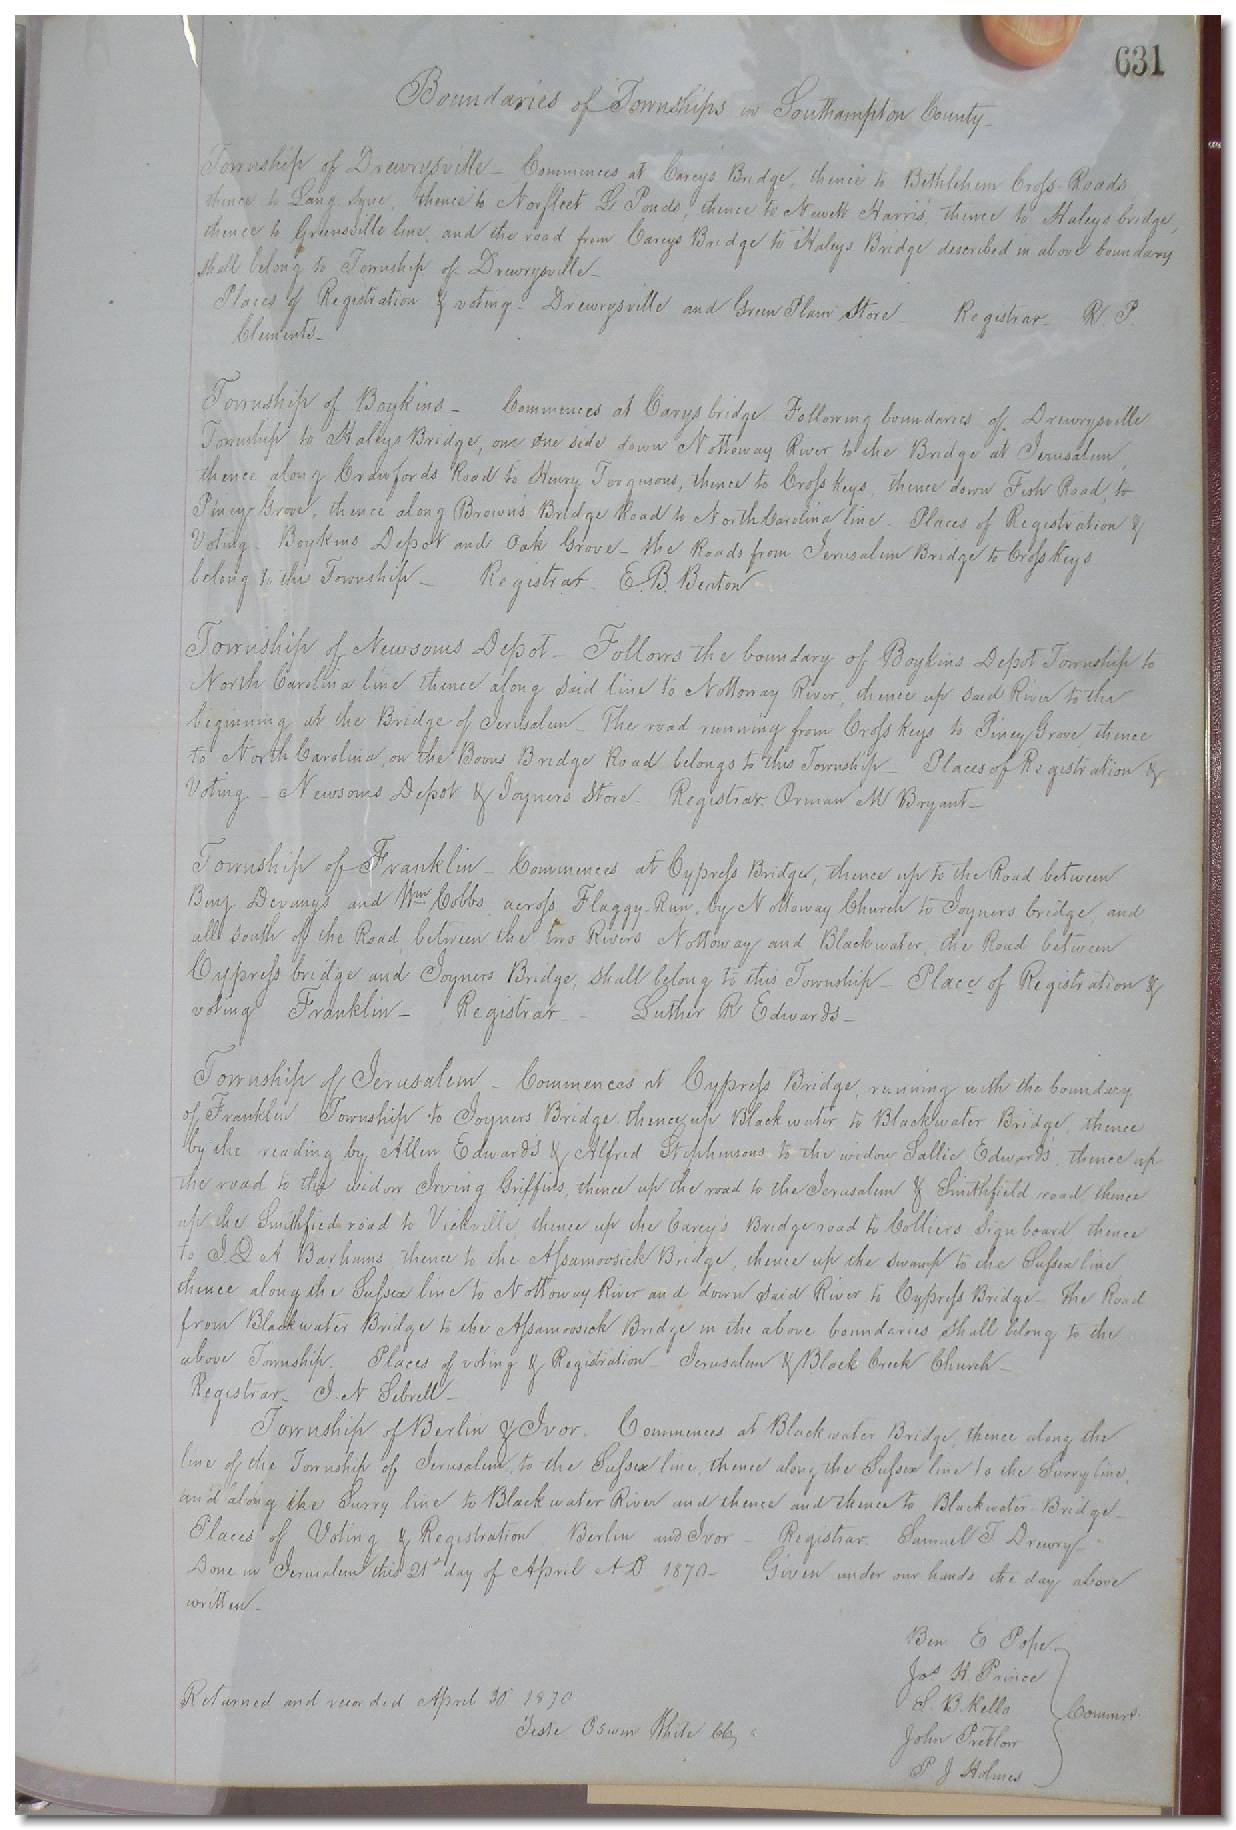 631
Boundaries of Townships in Southampton County-
Township of Drewrysville- Commences at Careys Bridge, thence to Bethlehem Cross-Roads
thence to thence to Norfleet Ponds, thence to Newett Harris thence to Haleys bridge,
thence to Greensville line, and the road from Careys Bridge to Haleys Bridge described in above boundary
shall belong to Township of Drewrysville-
Places of Registration & voting- Drewrysville and Green Plain Store- Registrar- R P
Clements-
Township of Boykins- Commences at Carys bridge. Following boundaries of Drewrysville
Township to Haleys Bridge, side down Nottoway River to the Bridge at Jerusalem,
thence along Crawfords Road to Henry thence to Cross Keys, thence down Fish Road to
Piney Grove, thence along Browns Bridge Road to North Carolina line. Places of Registration &
Voting. Boykins Depot and Oak Grove- the Roads from Jerusalem Bridge to Cross Keys
belong to this Township- Registrar- E. B. Benton
Township of Newsoms Depot- Follows the boundary of Boykins Depot Township to
North Carolina line thence along said line to Nottoway River, thence up said River to the
beginning at the Bridge of Jerusalem- The road running from Cross Keys to Piney Grove, thence
to North Carolina, on the Bridge Road belongs to this Township- Places of Registration &
Voting- Newsoms Depot & Joyners Store. Registrar. Orman M Bryant-
Township of Franklin- Commences at Cypress Bridge, thence up to the Road between
Benj Devanys and Wm Cobbs, across Flaggy-Run, by Nottoway Church to Joyners bridge, and
all South of the Road between the two Rivers Nottoway and Blackwater, the Road between
Cypress bridge and Joyners Bridge, shall belong to this Township- Place of Registration &
voting Franklin- Registrar- Luther R Edwards-
Township of Jerusalem- Commences at Cypress Bridge, running with the boundary
of Franklin Township to Joyners Bridge, thence up Blackwater to Blackwater Bridge, thence
by the reading by Allen Edwards & Alfred Stephensons to the widow Sallie Edwards, thence up
the road to the widow Irving Griffins, thence up the road to the Jerusalem & Smithfield road thence
up the Smithfied road to Vickville, thence up the Carey's Bridge road to Colliers Sign board thence
to J. Q A Barhams, thence to the Assamoosick Bridge, thence up the swamp to the Sussex line,
thence along the Sussex line to Nottoway River and down said River to Cypress Bridge- The Road
from Blackwater Bridge to the Assamoosick Bridge in the above boundaries shall belong to the
above Township. Places of voting & Registration- Jerusalem & Black Creek Church-
Registrar- J. N Sebrell-
Township of Berlin & Ivor. Commences at Blackwater Bridge, thence along the
line of the Township of Jerusalem, to the Sussex line, thence along the Sussex line to the Surry line,
and along the Surry line to Blackwater River and thence and thence to Blackwater Bridge-
Places of Voting & Registration Berlin and Ivor- Registrar. Samuel T Drewry-
Done in Jerusalem this 21st day of April A D 1870- Given under our hands the day above
written-
Ben E Pope
Jas H. Prince
S. B. Kello
Commrs.
John Pretlow
P J Holmes
Returned and recorded April 30 1870
Teste Oswin White Clk